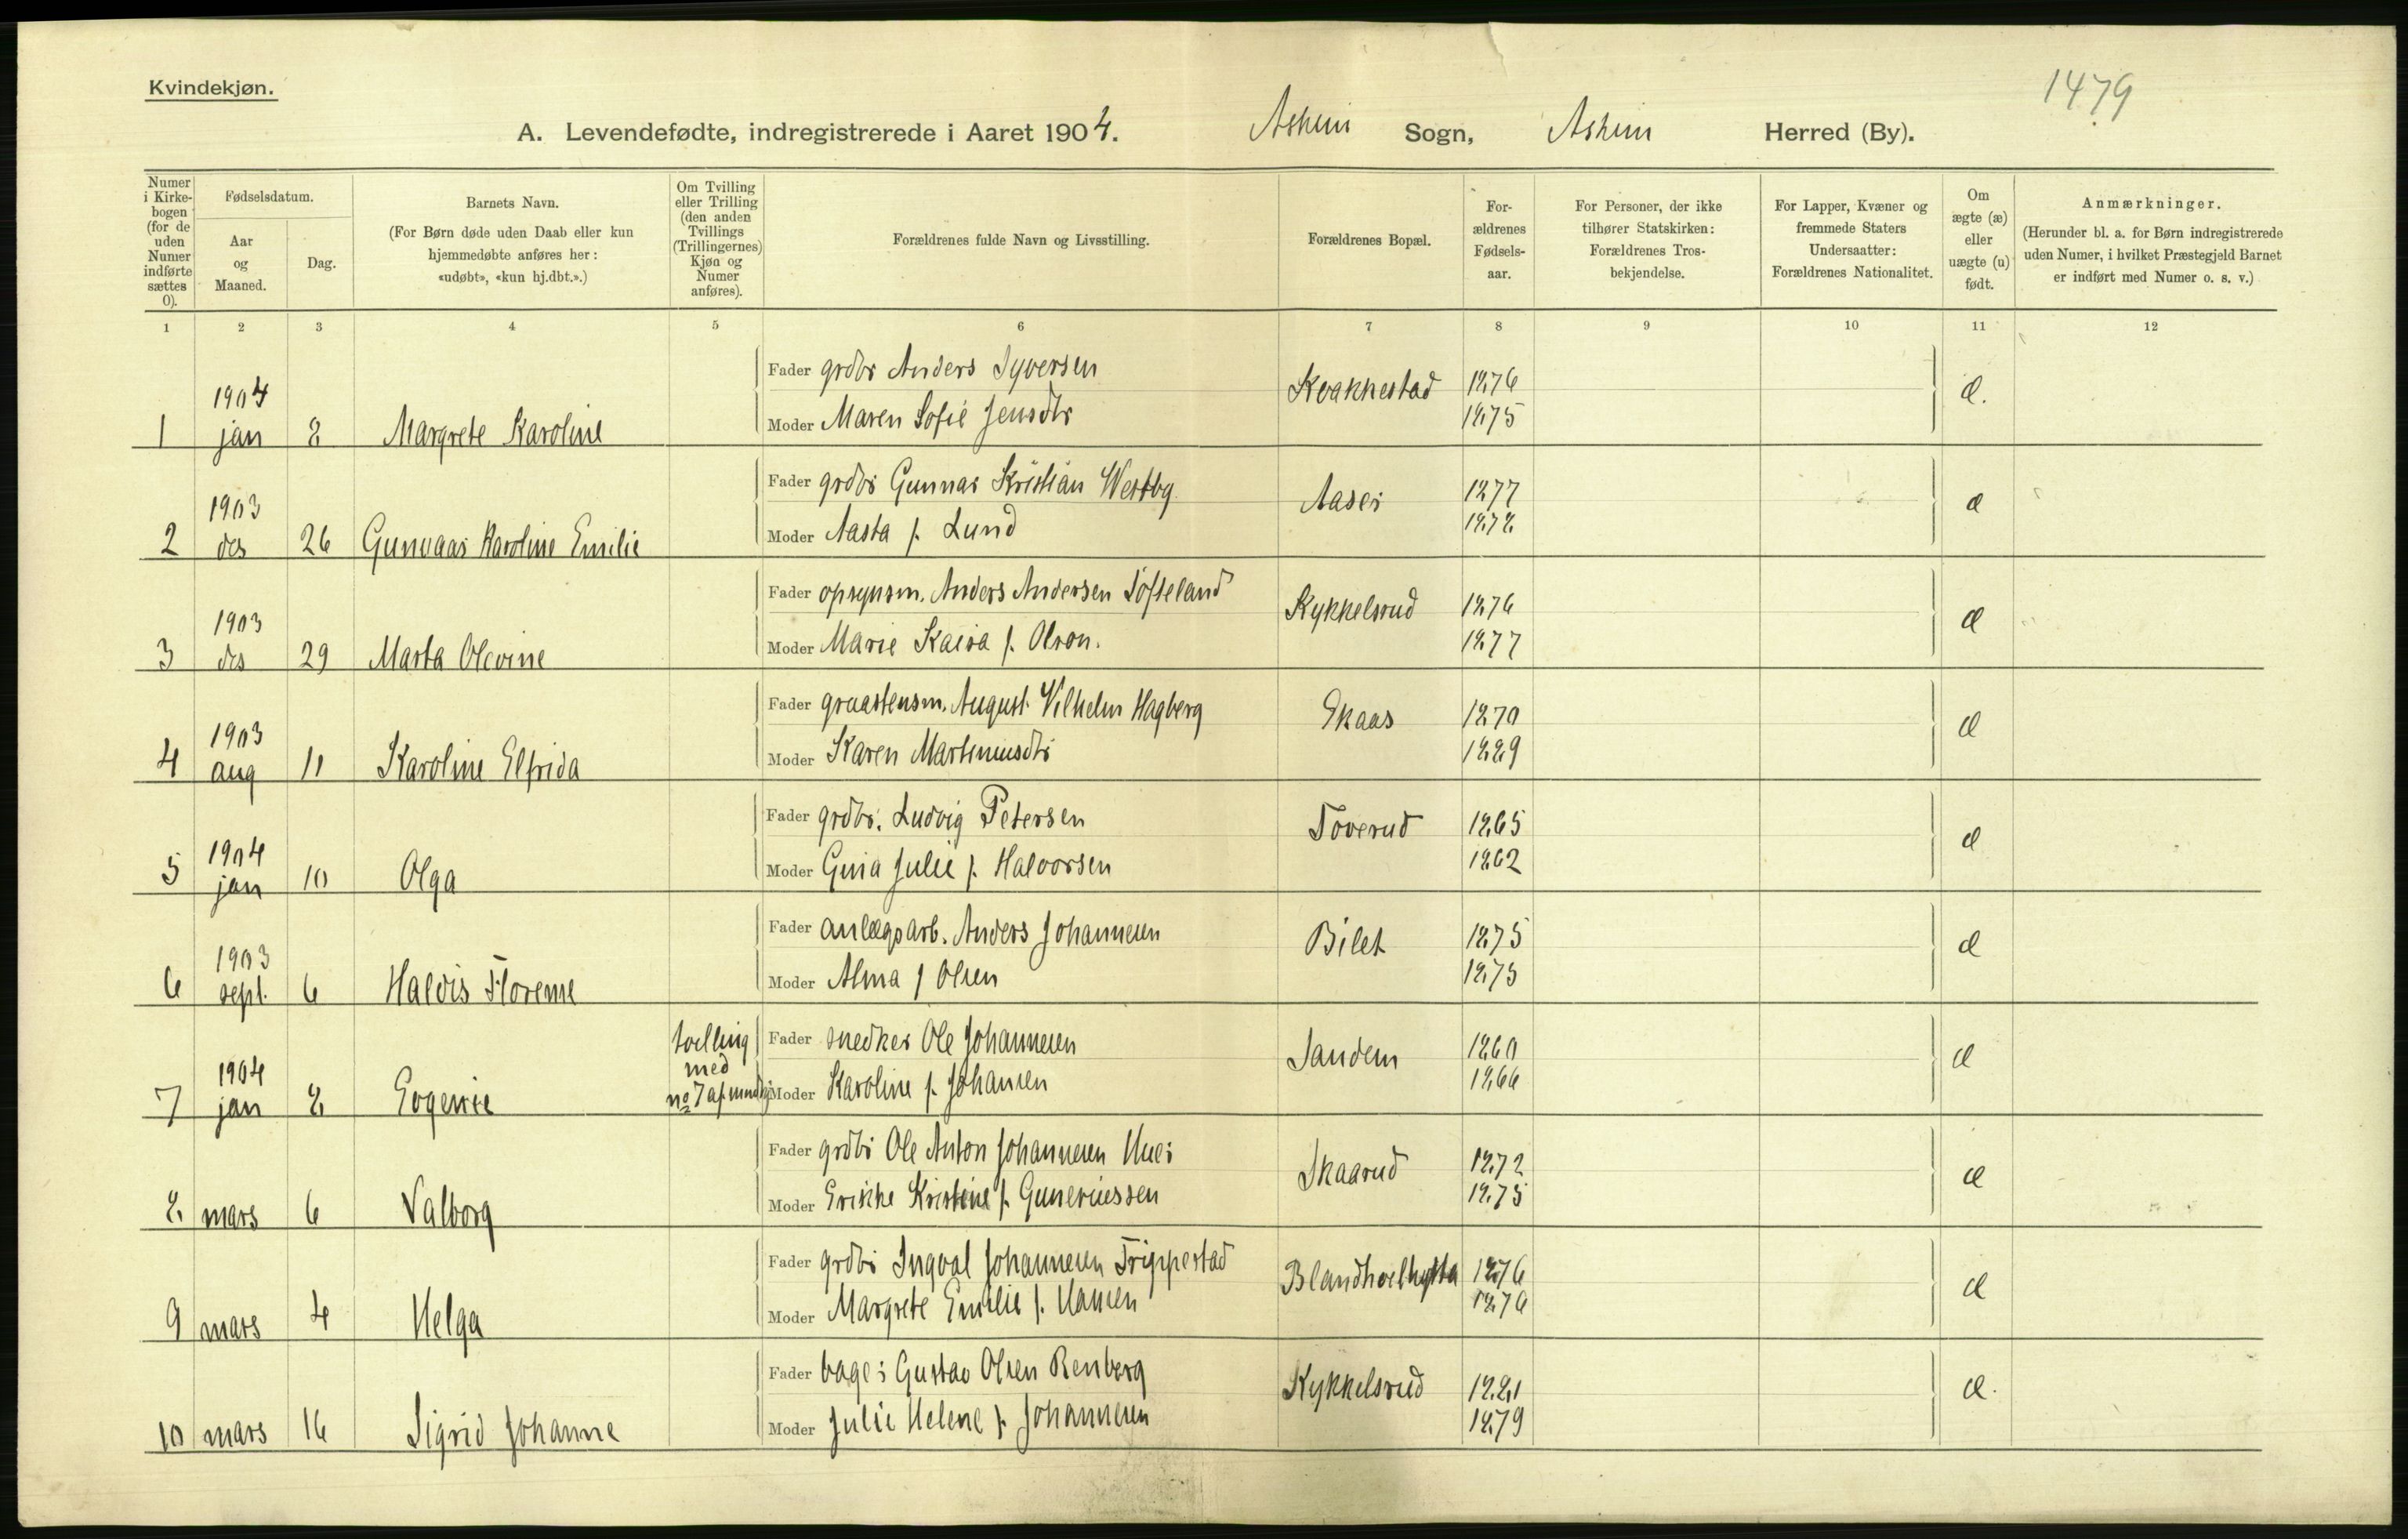 Kvindekjøn.
1479
A. Levendefødte, indregistrerede i Aaret 1904. Askim Sogn, Askim Herred (By).
Numer i Kirke-bogen (for de uden Numer indførte sættes 0).
Fødselsdatum.
Aar og Maaned.
Dag.
Barnets Navn.
(For Børn døde uden Daab eller kun
hjemmedøbte anføres her:
«udøbt», «kun hj.dbt.».)
Om Tvilling
eller Trilling
(den anden
Tvillings
(Trillingernes)
Kjøn og
Numer
anføres).
Forældrenes fulde Navn og Livsstilling.
Forældrenes Bopæl.
For-
ældrenes
Fødsels-
aar.
For Personer, der ikke
tilhører Statskirken:
Forældrenes Tros-
bekjendelse.
For Lapper, Kvæner og
fremmede Staters
Undersaatter:
Forældrenes Nationalitet.
Om
ægte (æ)
eller
uægte (u)
født.
Anmærkninger.
(Herunder bl. a. for Børn indregistrerede
uden Numer, i hvilket Præstegjeld Barnet
er indført med Numer o. s. v.)
1 2 3 4 5 6 7 8 9 10 11 12
1 1904 jan 8 Margrete Karoline
Fader grdbr Anders Syversen Kvakkestad 1876 æ.
Moder Maren Sofie Jensdtr 1875
2 1903 des 26 Gunvaar Karoline Emilie
Fader grdbr Gunnar Kristian Westbg Aaser 1877 æ
Moder Aasta f. Lund 1878
3 1903 des 29 Marta Olovine
Fader opsynsm. Anders Andersen Tofteland Kykkelsrud 1876 æ
Moder Marie Kaisa f. Olson. 1877
4 1903 aug 11 Karoline Elfrida
Fader graastensm. August Vilhelm Hagberg Skaas 1870 æ
Moder Karen Martinusdtr 1889
5 1904 jan 10 Olga
Fader grdbr. Ludvig Petersen Toverud 1865 æ
Moder Gina Julie f. Halvorsen 1862
6 1903 sept. 6 Haldis Florense
Fader anlægsarb. Anders Johannesen Bilet 1875 æ
Moder Alma f Olsen 1875
7 1904 jan 8 Evgenie tvilling med no 7 af mandkj
Fader snedker Ole Johannesen Sandem 1860 æ
Moder Karoline f. Johansen 1866
8 mars 6 Valborg
Fader grdbr Ole Anton Johannesen Huer Skaarud 1872 æ
Moder Erikke Kristine f. Guneriussen 1875
9 mars 4 Helga
Fader grdbr Ingval Johannesen Trippestad Blandholhytta 1876 æ
Moder Margrete Emilie f. Hansen 1876
10 mars 16 Sigrid Johanne
Fader bager Gustav Olsen Renberg Kykkelsrud 1881 æ.
Moder Julie Helene f. Johannesen 1879